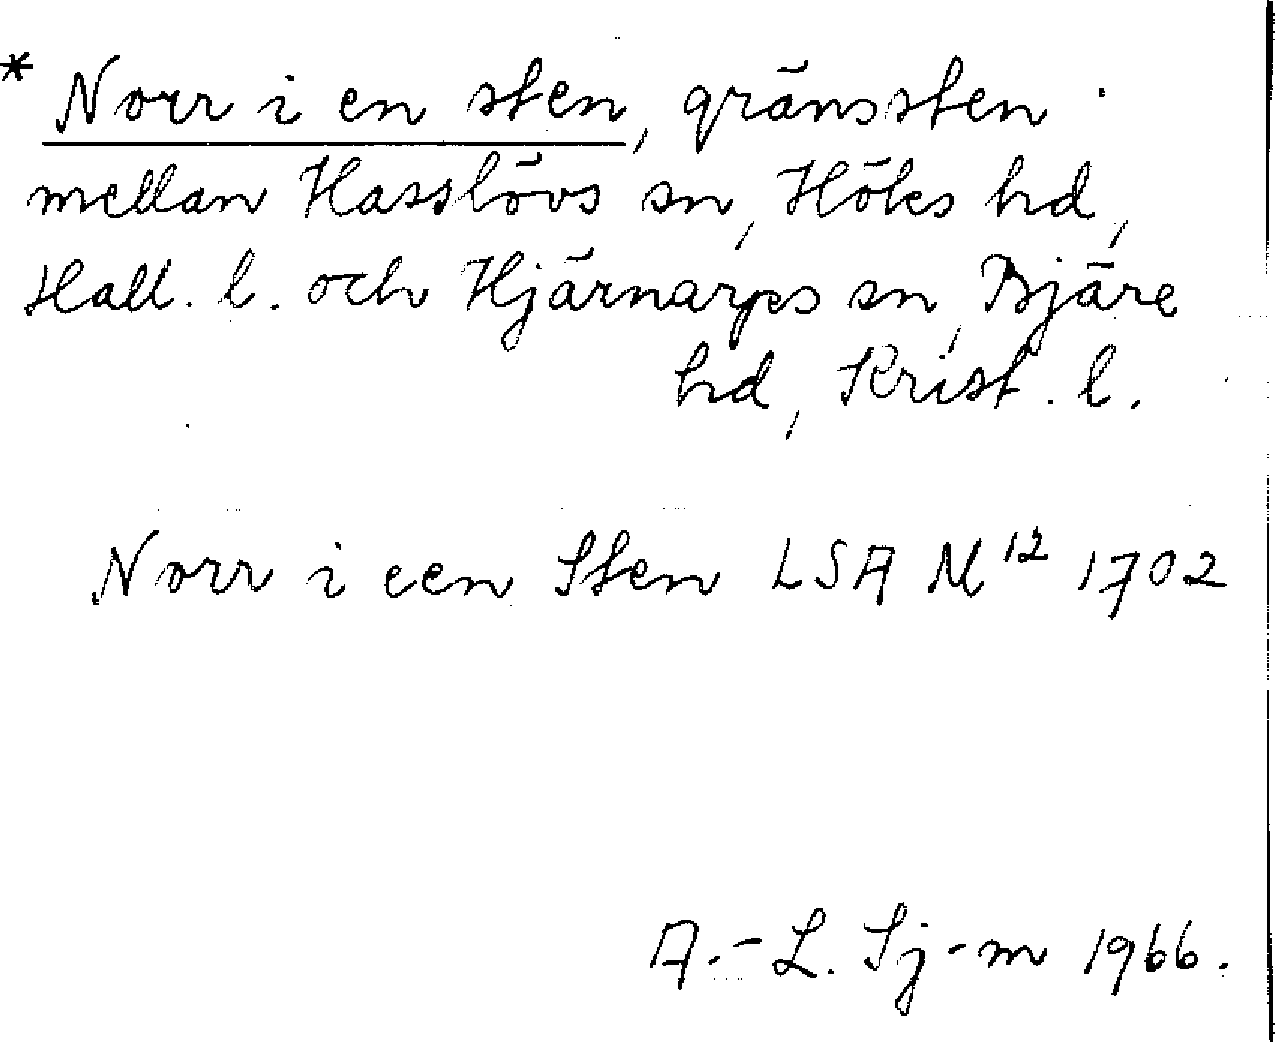 * Norr i en sten, gränssten
mellan Hasslövs sn, Höks hd,
Hall. l. och Hjärnarps sn, Bjäre
hd, Krist. l.
Norr i een Sten LSA M¹² 1702
A.-L. Sj-m 1966.